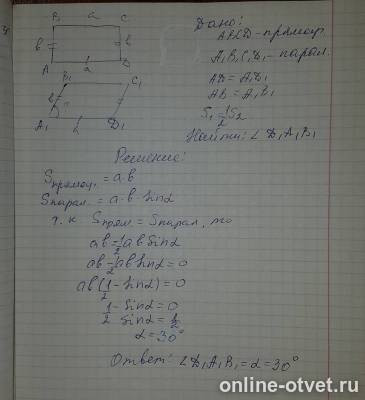 B a C
b b
A a D
B₁ C₁
b
A₁ a D₁
Дано:
ABCD - прямоуг.
A₁B₁C₁D₁ - парал.
AD = A₁D₁
AB = A₁B₁
S₁ = 1/2 S₂
Найти: ∠D₁A₁B₁
Решение:
Sпрямоуг. = a·b
Sпарал. = a·b·sinα
т.к. Sпрям = Sпарал, то
ab = 1/2 ab sinα
ab - 1/2 ab sinα = 0
ab(1/2 - sinα) = 0
1/2 - sinα = 0
sinα = 1/2
α = 30°
Ответ: ∠D₁A₁B₁ = α = 30°
online-otvet.ru